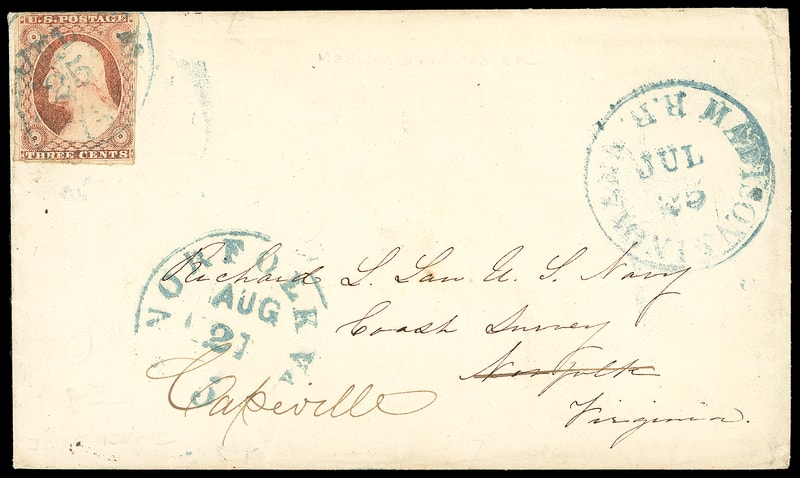 U.S. POSTAGE
THREE CENTS
MADISON & INDIANA R.R.
JUL
25
NORFOLK Va
AUG
21
5
Richard L. Law U. S. Navy
Coast Survey
Norfolk
Capeville
Virginia.